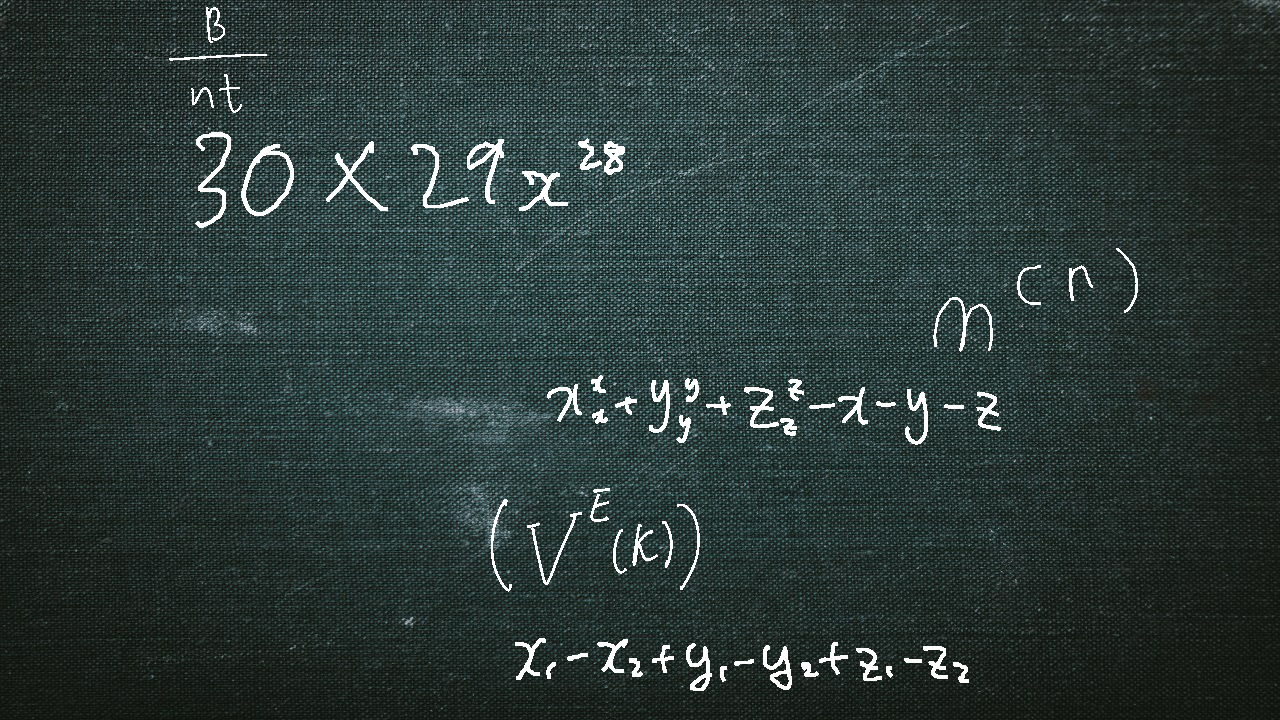 \frac{B}{nt}
30 \times 29x^{28}
m^{(n)}
x_x^x + y_y^y + z_z^z - x - y - z
(V^E(K))
x_1 - x_2 + y_1 - y_2 + z_1 - z_2